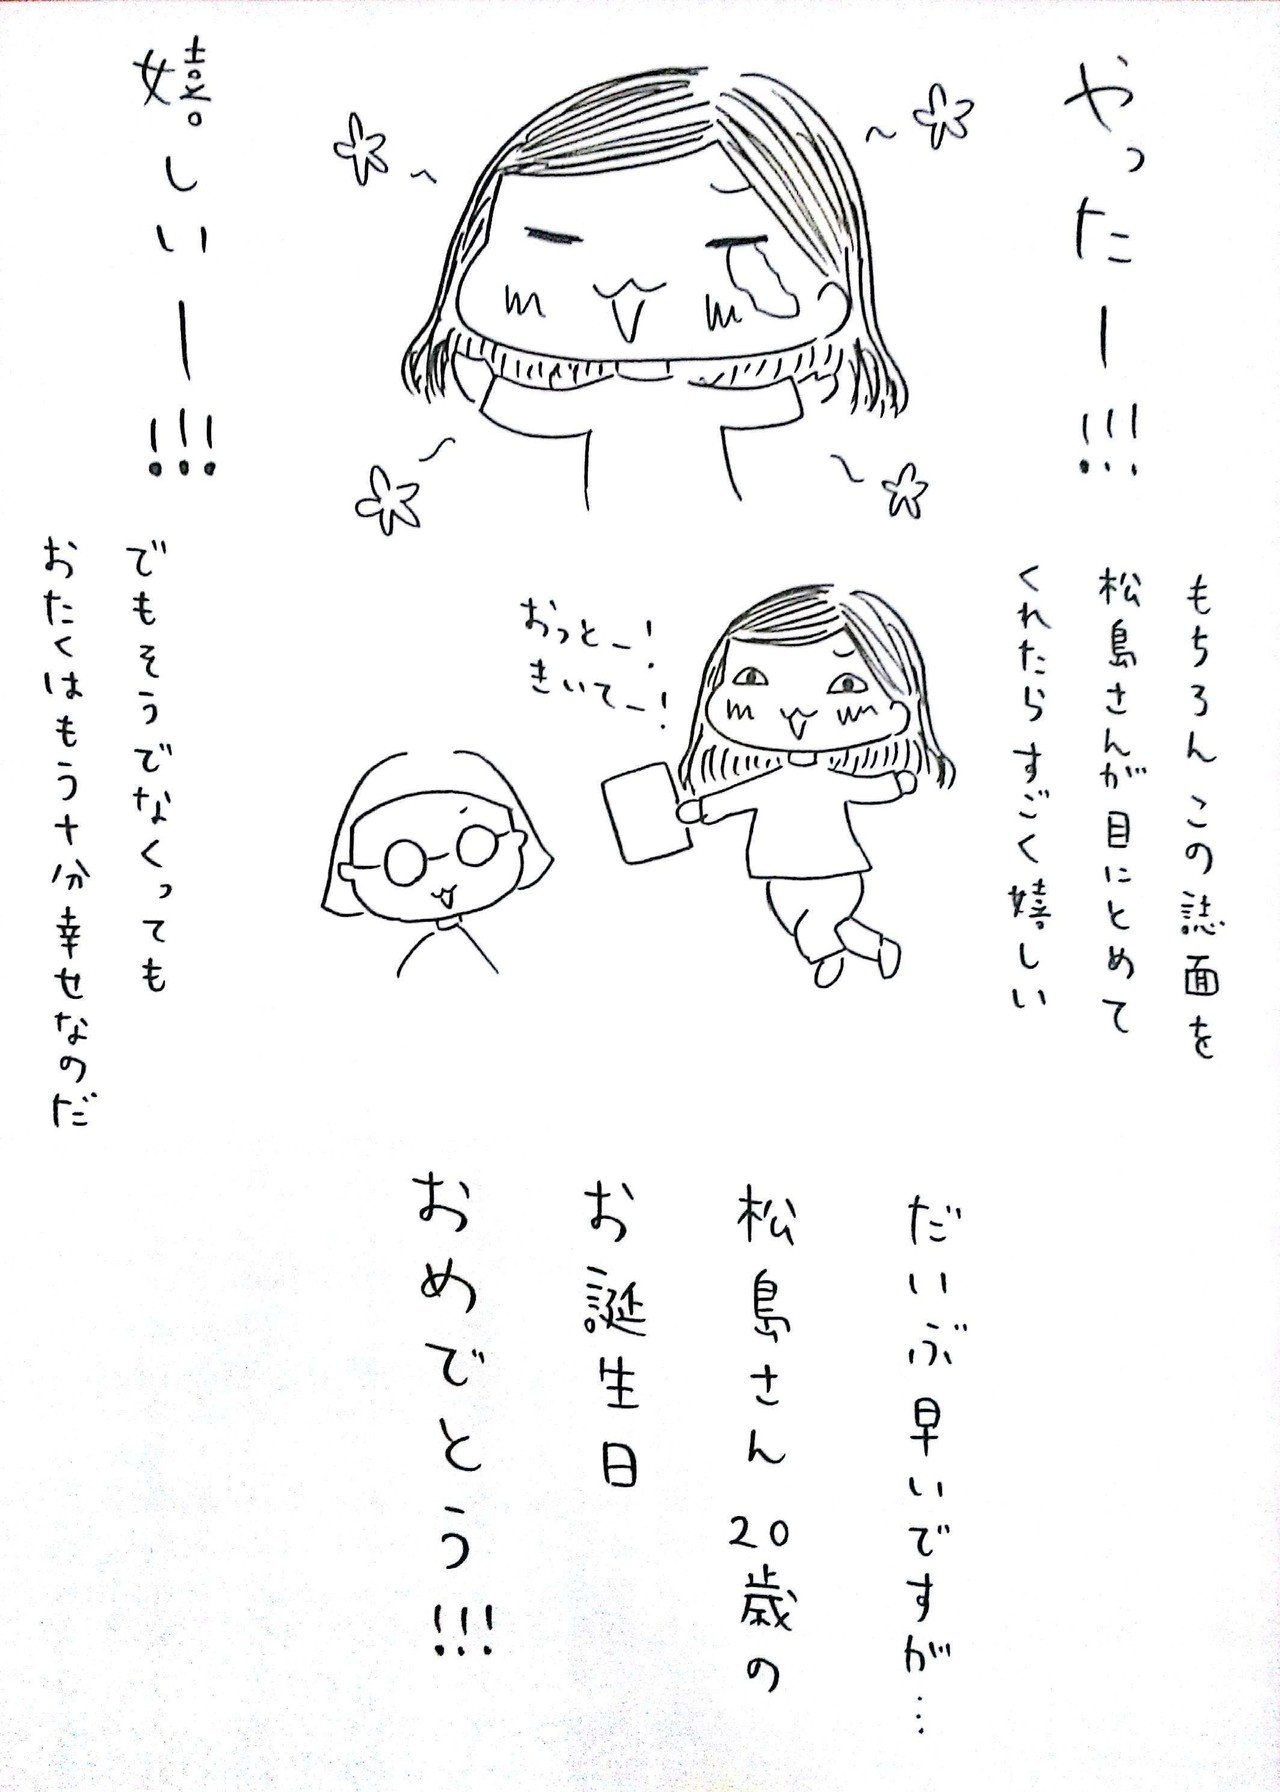 やったー!!!
嬉しいー!!!
もちろんこの誌面を
松島さんが目にとめて
くれたらすごく嬉しい
おっとー!
きいてー!
でもそうでなくっても
おたくはもう十分幸せなのだ
だいぶ早いですが…
松島さん20歳の
お誕生日
おめでとう!!!